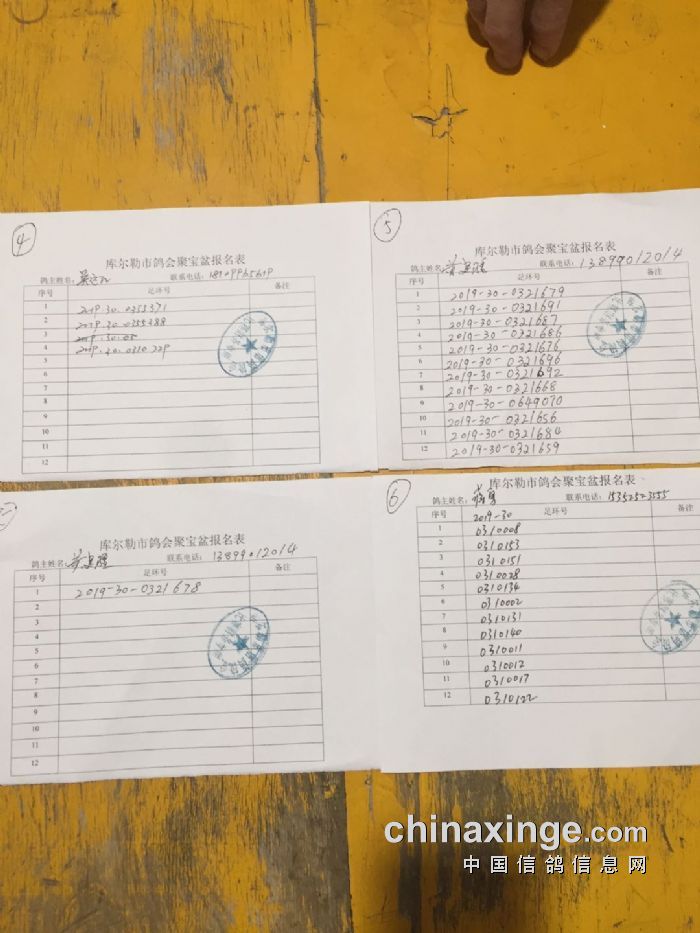 4
库尔勒市鸽会聚宝盆报名表
鸽主姓名: 联系电话:
序号 足环号 备注
1 2019.30.0355371
2 2019.30.0355388
3
4 2019.30.0310229
5
6
7
8
9
10
11
12
5
库尔勒市鸽会聚宝盆报名表
鸽主姓名: 联系电话: 13899012014
序号 足环号 备注
1 2019-30-0321679
2 2019-30-0321691
3 2019-30-0321687
4 2019-30-0321686
5 2019-30-0321676
6 2019-30-0321696
7 2019-30-0321692
8 2019-30-0321668
9 2019-30-0649070
10 2019-30-0321656
11 2019-30-0321684
12 2019-30-0321659
库尔勒市鸽会聚宝盆报名表
鸽主姓名: 联系电话: 13899012014
序号 足环号 备注
1 2019-30-0321678
2
3
4
5
6
7
8
9
10
11
12
6
库尔勒市鸽会聚宝盆报名表
鸽主姓名: 联系电话:
序号 足环号 备注
2019-30
1 0310008
2 0310153
3 0310151
4 0310028
5 0310134
6 0310002
7 0310131
8 0310140
9 0310011
10 0310012
11 0310017
12 0310122
chinaxinge.com
中国信鸽信息网